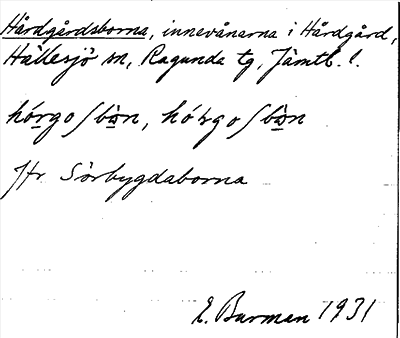 Hårdgårdsborna, innevånarna i Hårdgård,
Hällesjö sn, Ragunda tg, Jämtl. l.
hó̱rgoʃbò̱n, hó̵rgoʃbò̱n
Jfr Sörbygdaborna
E. Burman 1931